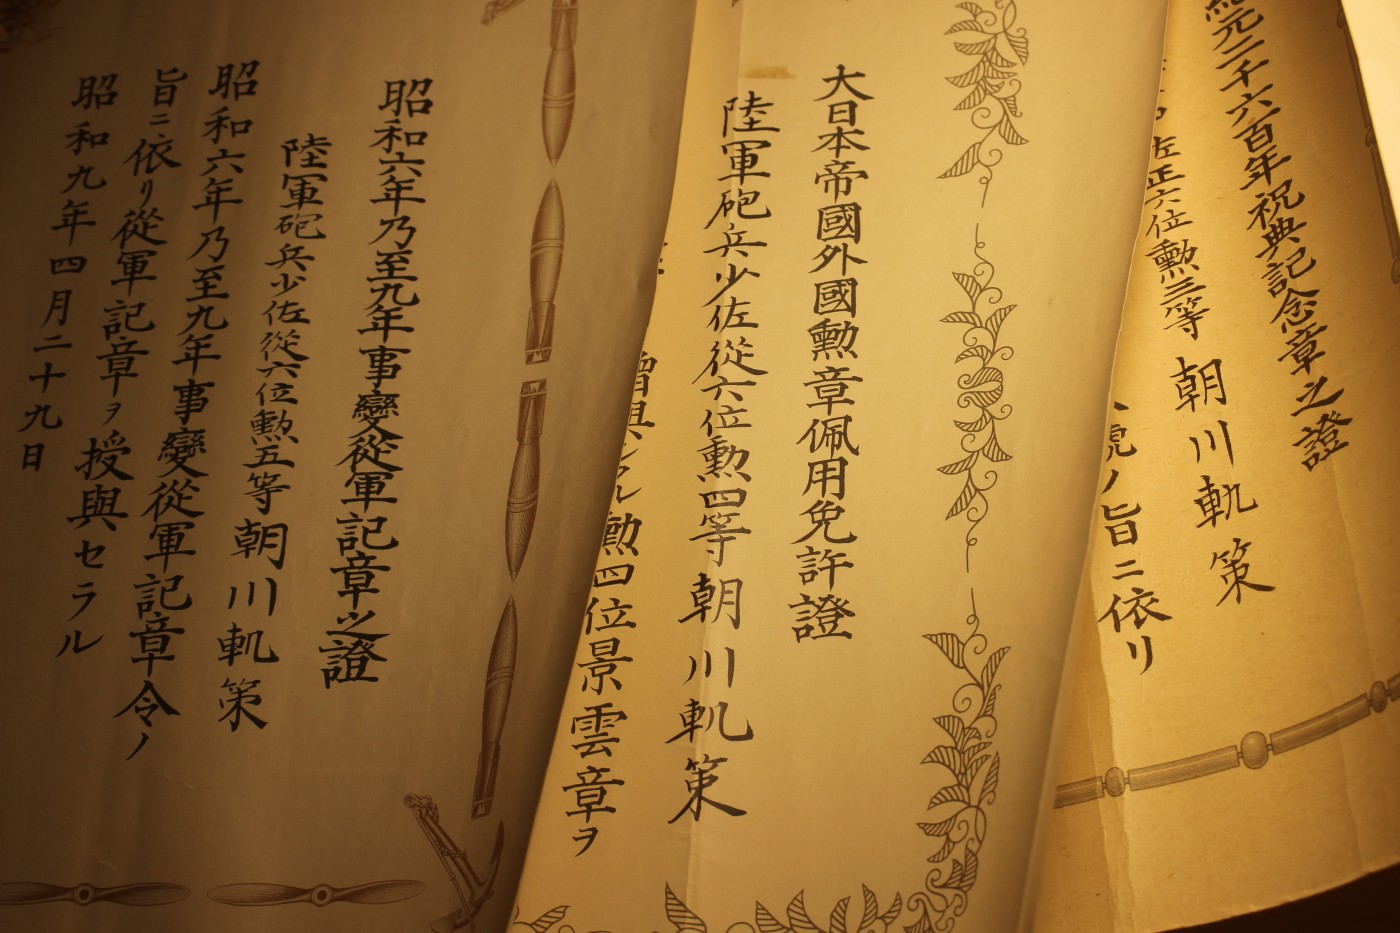 紀元二千六百年祝典記念章之證
佐正六位勲三等 朝川軌策
ノ旨ニ依リ
大日本帝國外國勲章佩用免許證
陸軍砲兵少佐從六位勲四等 朝川軌策
勲四位景雲章ヲ
昭和六年乃至九年事變從軍記章之證
陸軍砲兵少佐從六位勲五等 朝川軌策
昭和六年乃至九年事變從軍記章令ノ
旨ニ依リ從軍記章ヲ授與セラル
昭和九年四月二十九日